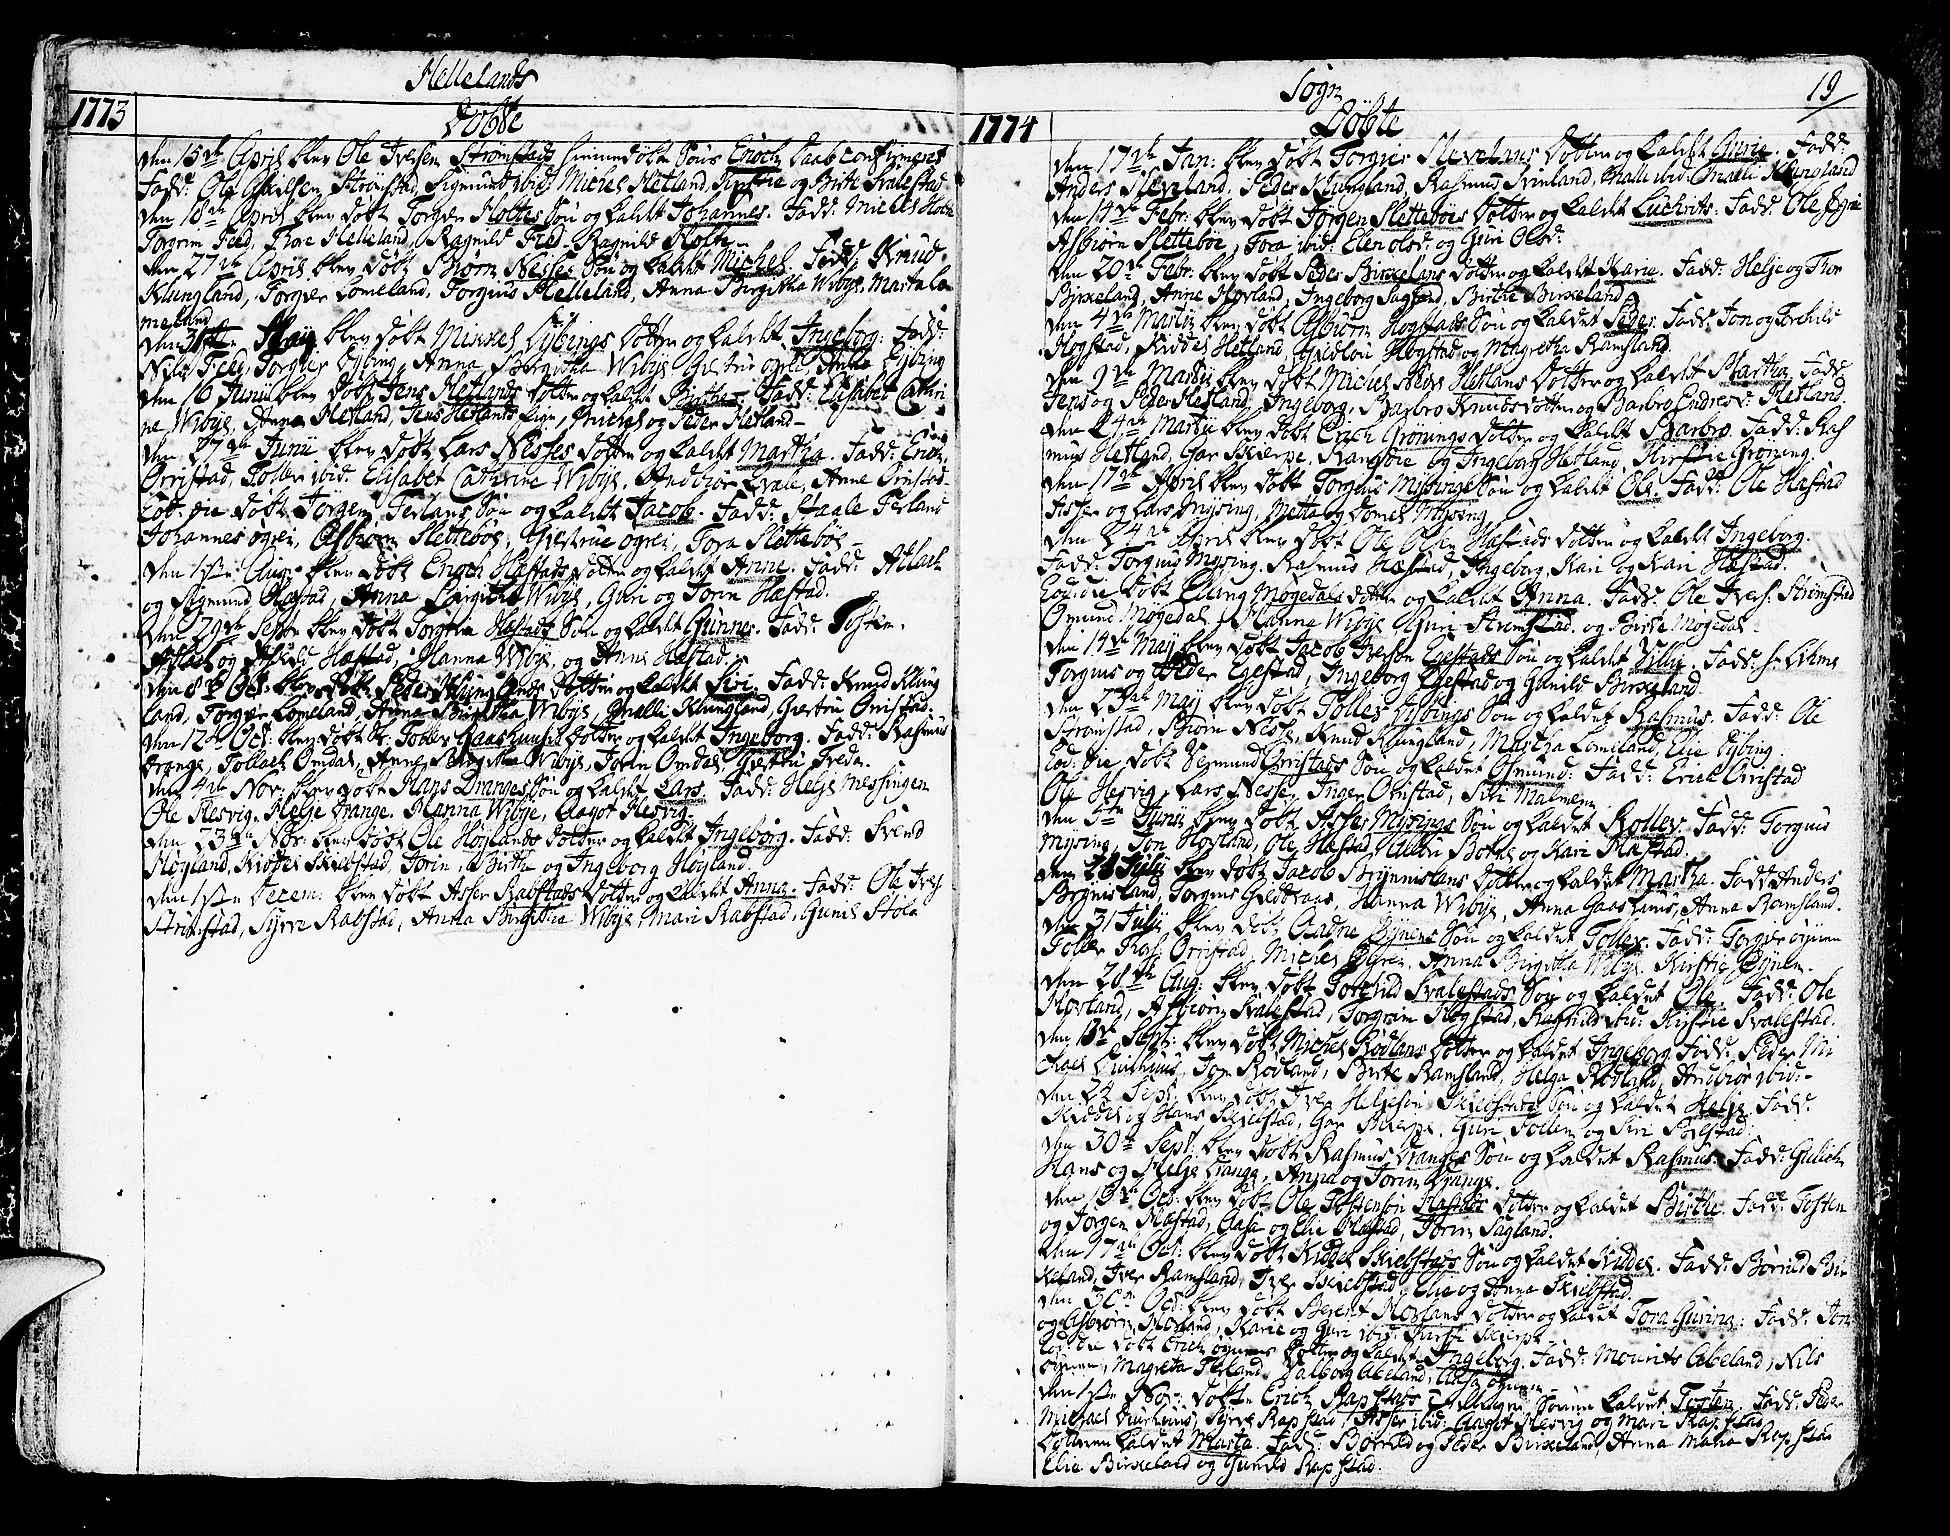 Hellelands
1773
Döbte
den 15de April blev Ole Iversen Strömstads hiemmedöbt Söns Enoch Daab confirmeret
Fadd: Ole Strömstad, Sigmund ibid: Michel Hetland, Kirstie og Birte Svalestad
den 18de April blev döbt Torgier Holtes Sön og kaldt Johannes. Fadd: Michel Holte
Torgrim Feed, Helleland, Ragnild Fred Ragnild Holte
den 27de April blev döbt Biörn Nesses Sön og kaldt Michel. Fadd: Knud
Klungland, Torger Lomeland, Torgius Helleland, Anna Birgitha Wibye, Marta Lo
meland
den 31te May blev döbt Mikkel Eybings Dotter og kaldt Ingeborg. Fadd:
Nils Feed, Torgier Eybing, Anna Birgitha Wibye, Anna Eybing
den 16 Junii blev döbt Jens Hetlands Dotter og kaldt Birthe. Fadd: Elisabet Cathri
ne Wibye, Anna Hetland, Jens Hetlands, Michel og Peder Hetland
den 27de Junii blev döbt Lars Nesses Dotter og kaldt Martha. Fadd: Erich
Orrestad, Toller ibid: Elisabet Cathrine Wibye, Andbior Qvale, Anne Orrestad
Eod: die döbt Jörgen Terlans Sön og kaldt Jacob. Fadd: Staale Terland
Johannes ögren, Asbiörn Slettebøe, Giertrue ögren, Tora Slettebøe
den 1ste Aug: blev döbt Enoch Hæstads Dotter og kaldt Anne. Fadd: Atlach
og Sigmund Hæstad, Anna Birgitha Wibye, Guri og Torin Hæstad.
den 29de Sept: blev döbt Torgrim Hæstads Sön og kaldt Gunner. Fadd: Tosten,
Atlach og Hæstad, Hanna Wibye, og Anne Hæstad.
den 8de Oct: blev döbt Peder Klunglands Dotter og kaldt Siri. Fadd: Knud Klung
land, Torger Lomeland, Anna Birgitha Wibye, Malli Klungland, Giertru Orrestad.
den 12te Oct: blev döbt Tollev Gaashuuses Dotter og kaldt Ingeborg. Fadd: Rasmus
Drange, Tollach Omdal, Anne Birgitha Wibye, Torin Omdal, Giertru Freda.
den 4de Nov: blev döbt Hans Dranges Sön og kaldt Lars. Fadd: Helje Messingen
Ole Hesvig, Helje Drange, Hanna Wibye, Aagot Hesvig.
den 23de Nov: blev döbt Ole Höylands Dotter og kaldt Ingebörg. Fadd: Svend
Höyland, Kiddel Skiebstad, Torin, Birtha og Ingeborg Höyland.
den 1ste Decem: blev döbt Asser Rabstads Dotter og kaldt Anna. Fadd: Ole Ives
Strömstad, Syvre Rabstad, Anna Birgitha Wibye, Mari Rabstad, Gunild Stöle
Sogn
19
1774
Döbte
den 17de Jan: blev döbt Torgier Slevelans Dotter og kaldt Gurie. Fadd:
Anders Sleveland, Peder Klungland, Rasmus Svinland, Malli ibid: Malli Klungland
den 14de Febr: blev döbt Jörgen Slettebøes Dotter og kaldt Luchrits: Fadd: Ole
Asbiörn Slettebøe, Tora ibid: Elen olsd: og Guri Olsd:
den 20de Febr: blev döbt Peder Birkelans Dotter og kaldt Karie. Fadd: Helje og Thor
Birkeland, Anne Hovland, Ingeborg Sagland, Birthe Birkeland.
den 4de Martii blev döbt Asbiörn Hogstads Sön og kaldet Peder. Fadd: Jon og Torchild
Hogstad, Kiddel Hetland, Hogstad og Magretha Ramsland.
den 9de Martii blev döbt Michel Hetlans Dotter og kaldt Martha. Fadd:
Jens og Peder Hetland, Ingeborg, Barbro Knudsdotter og Barbro Endresd: Hetland.
den 24de Martii blev döbt Erich Grönings Dotter og kaldt Barbro. Fadd: Ras
mus Hetland, Gar Skierpe, Rangsöe og Ingeborg Hetland, Kirstie Gröning.
den 17de April blev döbt Torgius Mysings Sön og kaldt Ole. Fadd: Ole Hæstad
Asser og Lars Mysing, Metta og Mysing
den 24de April blev döbt Ole Hæstads Dotter og kaldt Ingeborg.
Fadd: Torgius Mysing, Rasmus Hæstad, Ingeborg, Kari og Kari Hæstad.
Eod: die döbt Elling Mögedals Dotter og kaldet Anna. Fadd: Ole Ivers: Strömstad
Omund Mögedal, Hanna Wibye, Guri Strömstad og Birte Mögedal.
den 14de May blev döbt Jacob Iversen Egestads Sön og kaldt Villu. Fadd:
Torgius og Peder Egestad, Ingeborg Egestad og Gunild Birkeland.
den 23de May blev döbt Tolles Eybings Sön og kaldet Rasmus. Fadd: Ole
Strömstad, Biörn Nesse, Knud Klungland, Martha Lomeland, Elie Eybing.
Eod: die döbt Vermund Orrestads Sön og kaldet Osmund: Fadd: Erich Orrestad
Ole Hesvig, Lars Nesse, Inger Orrestad, Siri Malmein.
den 5te Junii blev döbt Asser Mysings Sön og kaldet Rollev. Fadd: Torgius
Mysing, Jon Hovland, Ole Hæstad, og Kari Hæstad.
den 28 July blev döbt Jacob Brynneslans Dotter og kaldet Martha. Fadd: Anders
Brynnisland, Torgius Geddraas, Hanna Wibye, Anna Gaashuus, Anna Ramsland.
den 31 July blev döbt Aadne Öynens Sön og kaldet Tollev. Fadd: Torger öynen
Tolle Orrestad, Michel Ögren, Anna Birgitha Wibye, Kirstie Öynen.
den 28de Aug: blev döbt Torchild Svalestads Sön og kaldet Ole. Fadd: Ole
Hovland, Asbiörn Svalestad, Torgrim Hogstad, Ragnild ibid: Kirstie Svalestad.
den 13de Sept: blev döbt Michel Rödlans Dotter og kaldet Ingeborg. Fadd: Peder Mi
chael Duirhuus, Jon Rödland, Birte Ramsland, Helga Rödland, Andbiör ibid:
den 22 Sept: blev döbt Iver Heljesön Skiebstads Sön og kaldet Helje. Fadd:
Kiddel og Hans Skiebstad, Gar Skierpe, Guri Follem og Siri
den 30te Sept: blev döbt Rasmus Dranges Sön og kaldet Rasmus. Fadd: Gulich
Hans og Helje Drange, Anna og Torin Drange.
den 13de Oct: blev döbt Ole Tostensön Hæstads Dotter og kaldet Birthe. Fadd: Tosten
og Jorgen Hæstad, Aasa og Elie Hæstad, Torin Sagland.
den 17de Oct: blev döbt Kiddel Skiebstads Sön og kaldet Kiddel. Fadd: Börild Bir
keland, Iver Ramsland, Iver Skiebstad, Elie og Anna Skiebstad.
den 30te Oct: blev döbt Berent Hovlans Dotter og kaldet Tora Gurina: Fadd: Jon
og Asbiörn Hovland, Karie og Guri ibid: Skierpe
Eod: die döbt Erich öynens Dotter og kaldet Ingeborg. Fadd: Mourits Abeland, Nils
öynen, Magreta Valborg Abeland, Aasa öynen
den 1ste Nov: döbt Erich Rapstads Tvillinger Sönnen kaldet Tosten. Fadd: Peder
Michael Duirhuus, Syvre Rapstad, Asser ibid: Aagot Hesvig og Mari Rapstad
Dotteren kaldet Marta. Fadd: Börild og Peder Birkeland, Anna Maria Rapstad
Elie Birkeland og Gunild Rapstad.